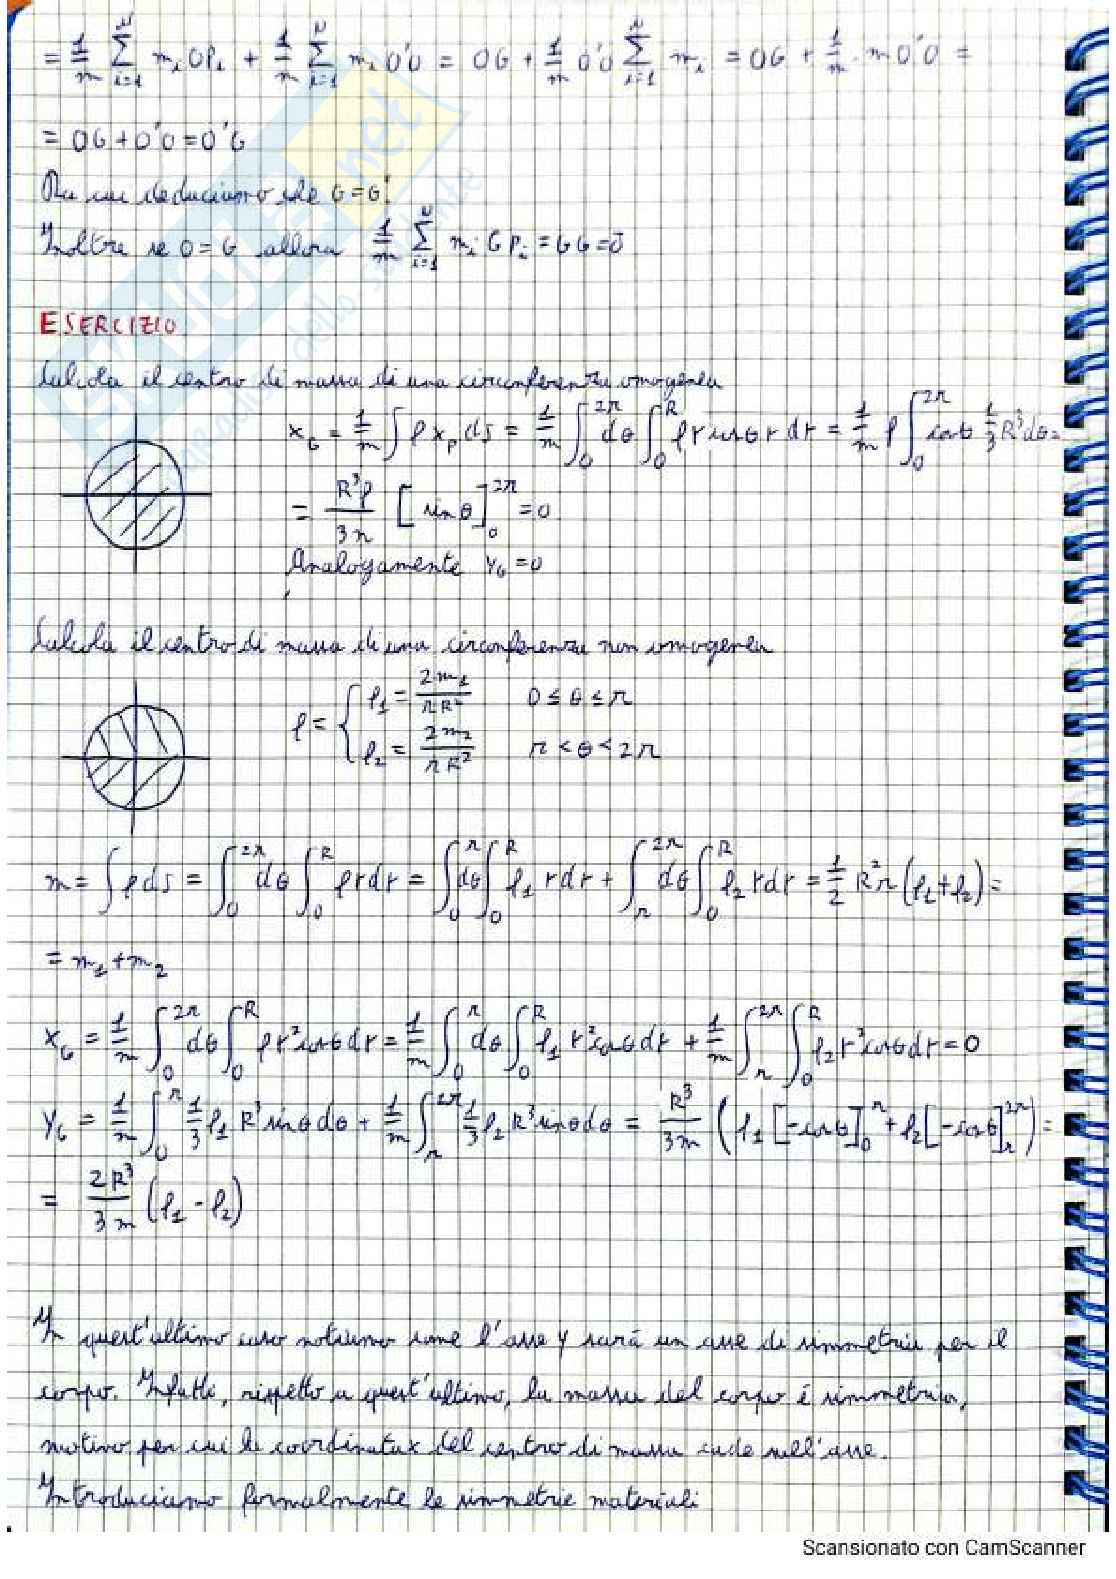 = 1/m Σ_{i=1}^{N} m_i OP_i + 1/m Σ_{i=1}^{N} m_i O'O = OG + 1/m O'O Σ_{i=1}^{N} m_i = OG + 1/m · m O'O =
= OG + O'O = O'G
Da cui deduciamo che G = G'
Inoltre se O = G allora 1/m Σ_{i=1}^{N} m_i GP_i = GG = 0
ESERCIZIO
Calcola il centro di massa di una circonferenza omogenea
x_G = 1/m ∫ ρ x_p ds = 1/m ∫_0^{2π} dθ ∫_0^R ρ r cosθ r dr = 1/m ρ ∫_0^{2π} cosθ 1/3 R³ dθ =
= R³ρ/3m [sinθ]_0^{2π} = 0
Analogamente y_G = 0
Calcola il centro di massa di una circonferenza non omogenea
ρ = { ρ_1 = 2m_1/πR² 0 ≤ θ ≤ π
ρ_2 = 2m_2/πR² π < θ < 2π
m = ∫ ρ ds = ∫_0^{2π} dθ ∫_0^R ρ r dr = ∫_0^π dθ ∫_0^R ρ_1 r dr + ∫_π^{2π} dθ ∫_0^R ρ_2 r dr = 1/2 R² π (ρ_1 + ρ_2) =
= m_1 + m_2
x_G = 1/m ∫_0^{2π} dθ ∫_0^R ρ r² cosθ dr = 1/m ∫_0^π dθ ∫_0^R ρ_1 r² cosθ dr + 1/m ∫_π^{2π} ∫_0^R ρ_2 r² cosθ dr = 0
y_G = 1/m ∫_0^π 1/3 ρ_1 R³ sinθ dθ + 1/m ∫_π^{2π} 1/3 ρ_2 R³ sinθ dθ = R³/3m (ρ_1 [-cosθ]_0^π + ρ_2 [-cosθ]_π^{2π}) =
= 2R³/3m (ρ_1 - ρ_2)
In quest'ultimo caso notiamo come l'asse y sarà un asse di simmetria per il
corpo. Infatti, rispetto a quest'ultimo, la massa del corpo è simmetrica,
motivo per cui la coordinata x del centro di massa cade sull'asse.
Introduciamo formalmente le simmetrie materiali
Scansionato con CamScanner